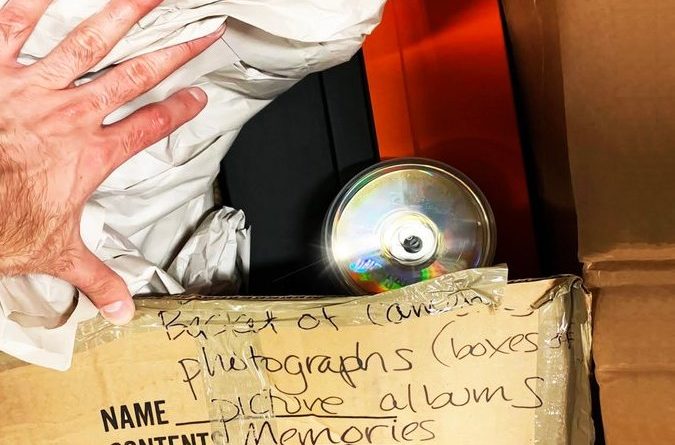 Basket of
photographs (boxes of
NAME picture albums
CONTENTS Memories